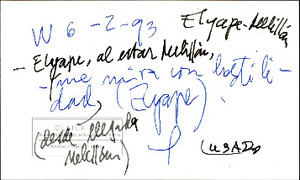 W 6-2-93
Elyape-Melillán
- Elyape, al estar Melillán,
- me mira con hostili-
dad (Elyape)
(desde llegada
Melillán)
(USADO